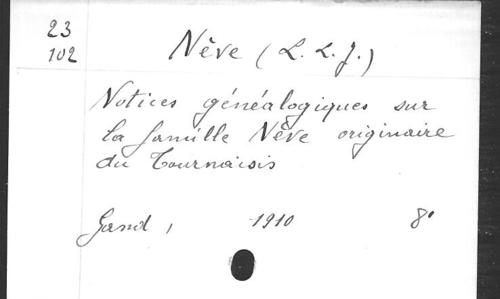 23
102
Nêve (L. L. J.)
Notices généalogiques sur
la famille Nêve originaire
du Tournaisis
Gand, 1910 8°